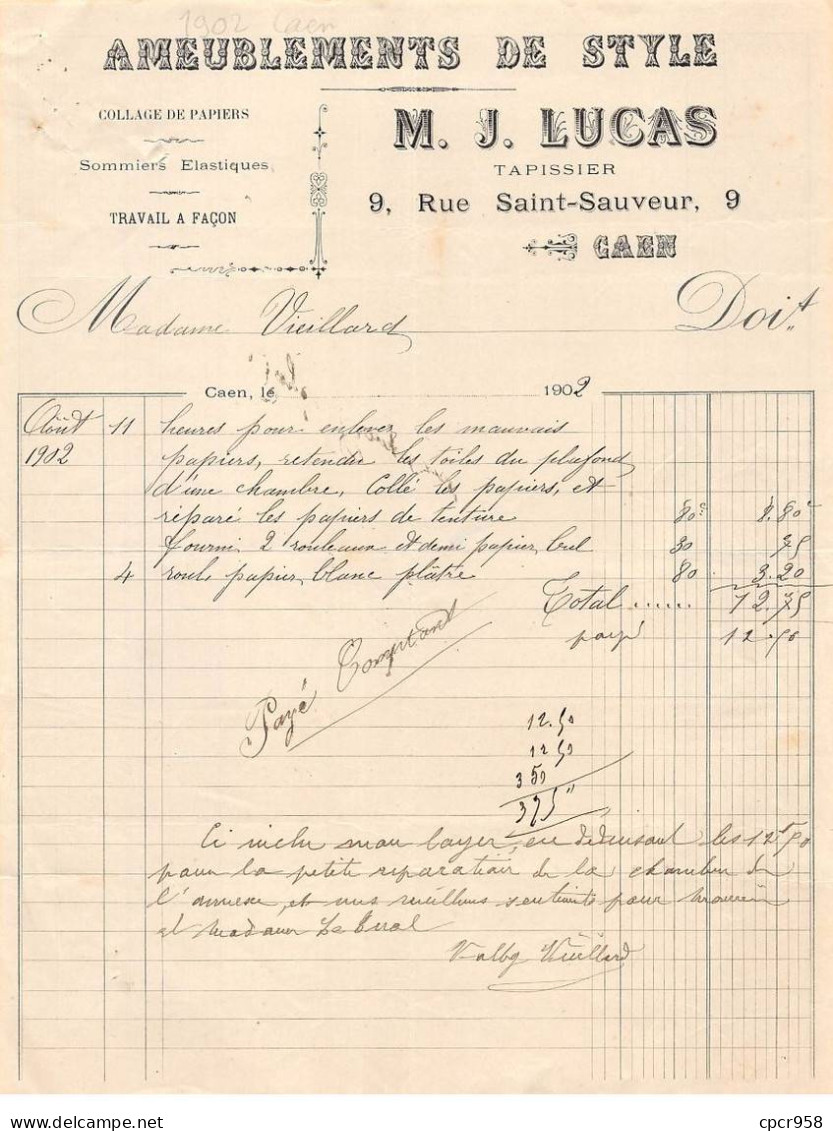 1902 Caen
AMEUBLEMENTS DE STYLE
COLLAGE DE PAPIERS
Sommiers Elastiques
TRAVAIL A FAÇON
M. J. LUCAS
TAPISSIER
9, Rue Saint-Sauveur, 9
CAEN
Madame Vieillard Doit
Caen, le 1902
Août 11 heures pour enlever les mauvais
1902 papiers, retendre les toiles du plafond
d'une chambre, Collé les papiers, et
réparé les papiers de tenture 80c 8.80c
fourni 2 rouleaux et demi papier bul 30 75
4 roul papier blanc plâtre 80 3.20
Total ...... 12.75
payé 12.50
Payé Comptant
12.50
1250
350
375"
Ci inclu mon loyer, en déduisant les 12f50
pour la petite reparation de la chambre de
l'annexe, et nos meilleurs sentiments pour
et Madame
Vieillard
cpcr958